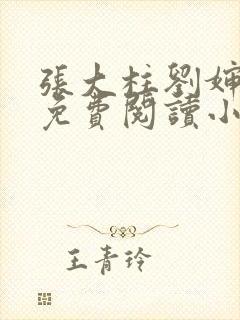 張大柱劉嬸
免費閱讀小
王青玲